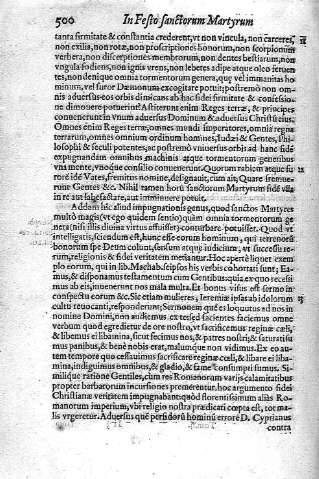 500 In Festo sanctorum Martyrum
tanta firmitate & constantia crederent, vt non vincula, non carceres,
non exilia, non rotæ, non proscriptiones bonorum, non scorpionum
verbera, non discerptiones membrorum, non dentes bestiarum, non
vngula fodiens, non ignis vrens, non lebetes adipe atque oleo feruen
tes, non denique omnia tormentorum genera, quę vel immanitas ho
minum, vel furor Dæmonum excogitare potuit; postremò non om-
nis aduersus eos orbis dimicans ab hac fidei firmitate & confessio-
ne dimouere potuerint? Astiterunt enim Reges terræ, & principes
conuenerunt in vnum aduersus Dominum & aduersus Christū eius.
Omnes enim Reges terræ, omnes mundi imperatores, omnia regna
terrarum, omnes omnium ordinum homines, Iudæi & Gentes, Phi-
losophi & seculi potentes, ac postremò vniuersus orbis ad hanc fidē
expugnandam omnibus machinis atque tormentorum generibus
vna mente, vnoque consilio conuenerunt. Quorum rabiem atque fu-
rorē idē Vates, fremitus nomine, designauit, cum ait; Quare fremue-
runt Gentes &c. Nihil tamen horū sanctorum Martyrum fidē vlla
in re aut labefactare, aut imminuere potuit.
Addam hic aliud impugnationis genus, quod sanctos Martyres
multò magis (vt ego quidem sentio) quàm omnia tormentorum ge
nera (nisi illis diuina virtus affuisset) conturbare potuisset. Quod vt
intelligatis, sciendum est, hunc esse errorem hominum, qui terrenorū
bonorum spe Deum colunt, sensum atque iudicium, vt successu re-
rum, religionis & fidei veritatem metiantur. Hoc apertè liquet exem
plo eorum, qui in lib. Machab. seipsos his verbis cohortati sunt; Ea-
mus, & disponamus testamentum cum Gentibus: quia ex quo recessi
mus ab eis, inuenerunt nos mala multa. Et bonus visus est sermo in
conspectu eorum &c. Sic etiam mulieres, Ieremiæ ipsas ab idolorum
cultu reuocanti, responderunt; Sermonem quē es loquutus ad nos in
nomine Domini, non audiemus ex te: sed facientes faciemus omne
verbum quod egredietur de ore nostro, vt sacrificemus reginæ cæli,
& libemus ei libamina, sicut fecimus nos, & patres nostri; & saturati su
mus panibus, & benè nobis erat, malumque non vidimus. Ex eo au-
tem tempore quo cessauimus sacrificare reginæ cœli, & libare ei liba-
mina, indiguimus omnibus, & gladio, & fame consumpti sumus. Si-
milique ratione Gentiles, cum res Romanorum varijs calamitatibus
propter barbarorum incursiones premerentur, hoc argumento fidei
Christianæ veritatem impugnabant: quòd florentissimum aliàs Ro-
manorum imperium, vbi religio nostra prædicari cœpta est, tot ma-
lis vrgeretur. Aduersus quē persidorū hominū errorē D. Cyprianus
contra